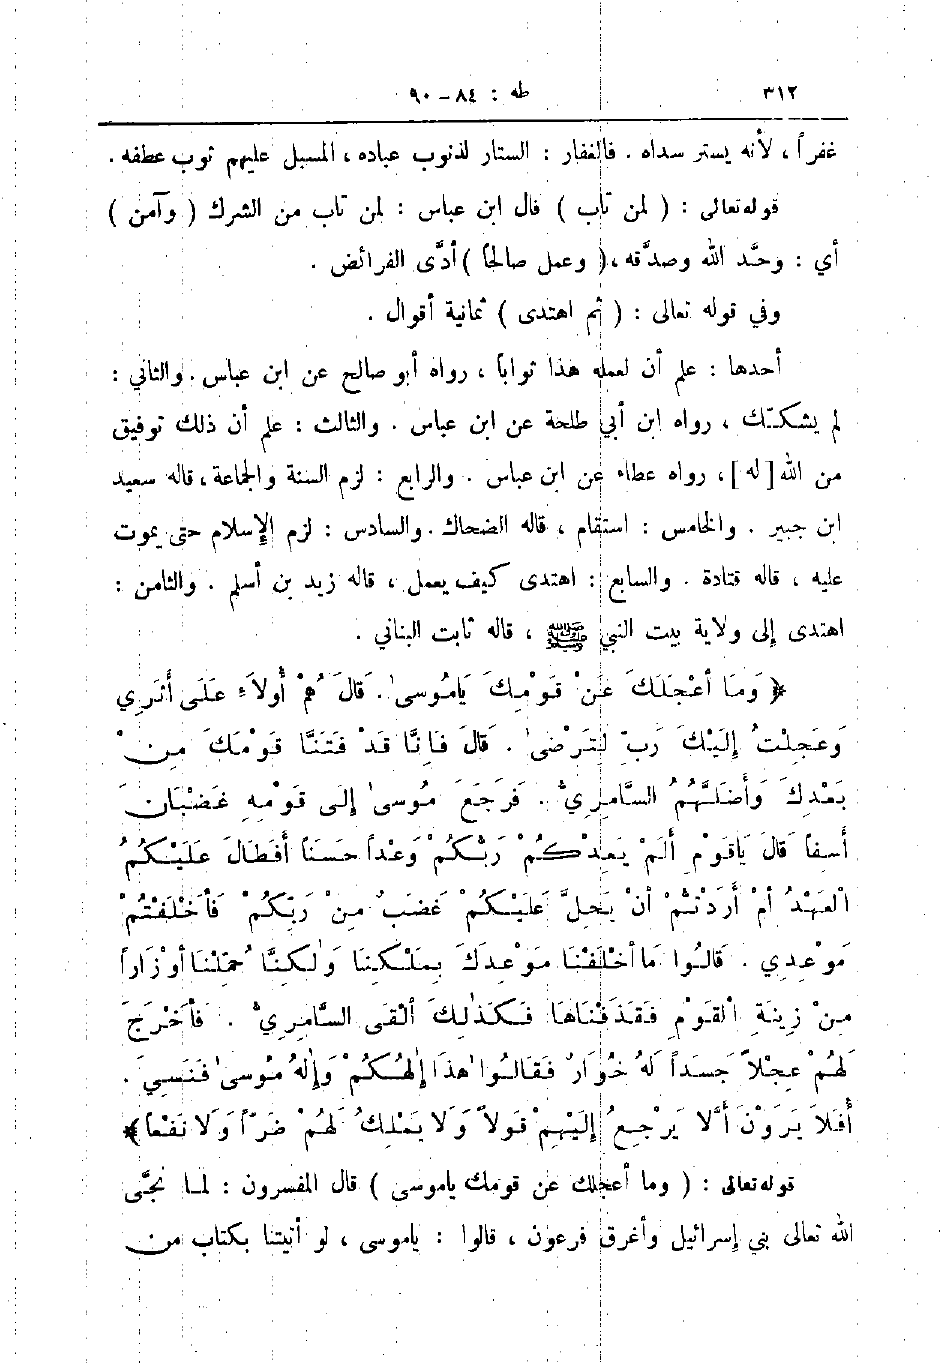 ٣١٢ طه : ٨٤ - ٩٠
غفراً ، لأنه يستر سداه . فالغفار : الستار لذنوب عباده ، المسبل عليهم ثوب عطفه .
قوله تعالى : ( لمن تاب ) قال ابن عباس : لمن تاب من الشرك ( وآمن )
أي : وحَّد الله وصدَّقه ، ( وعمل صالحاً ) أدَّى الفرائض .
وفي قوله تعالى : ( ثم اهتدى ) ثمانية أقوال .
أحدها : علم أن لعمله هذا ثواباً ، رواه أبو صالح عن ابن عباس . والثاني :
لم يشكـّك ، رواه ابن أبي طلحة عن ابن عباس . والثالث : علم أن ذلك توفيق
من الله [ له ] ، رواه عطاء عن ابن عباس . والرابع : لزم السنة والجماعة ، قاله سعيد
ابن جبير . والخامس : استقام ، قاله الضحاك . والسادس : لزم الإسلام حتى يموت
عليه ، قاله قتادة . والسابع : اهتدى كيف يعمل ، قاله زيد بن أسلم . والثامن :
اهتدى إلى ولاية بيت النبي ﷺ ، قاله ثابت البناني .
﴿ وَمَا أَعْجَلَكَ عَنْ قَوْمِكَ يَامُوسىٰ . قَالَ هُمْ أُولاَءِ عَلَى أَثَرِي
وَعَجِلْتُ إِلَيْكَ رَبِّ لِتَرْضىٰ . قَالَ فَإِنَّا قَدْ فَتَنَّا قَوْمَكَ مِنْ
بَعْدِكَ وَأَضَلَّهُمُ السَّامِرِيُّ . فَرَجَعَ مُوسىٰ إِلَى قَوْمِهِ غَضْبَانَ
أَسِفاً قَالَ يَاقَوْمِ أَلَمْ يَعِدْكُمْ رَبُّكُمْ وَعْداً حَسَناً أَفَطَالَ عَلَيْكُمُ
الْعَهْدُ أَمْ أَرَدْتُمْ أَنْ يَحِلَّ عَلَيْكُمْ غَضَبٌ مِنْ رَبِّكُمْ فَأَخْلَفْتُمْ
مَوْعِدِي . قَالُوا مَا أَخْلَفْنَا مَوْعِدَكَ بِمَلْكِنَا وَلٰكِنَّا حُمِّلْنَا أَوْزَاراً
مِنْ زِينَةِ الْقَوْمِ فَقَذَفْنَاهَا فَكَذٰلِكَ أَلْقَى السَّامِرِيُّ . فَأَخْرَجَ
لَهُمْ عِجْلاً جَسَداً لَهُ خُوَارٌ فَقَالُوا هٰذَا إِلٰهُكُمْ وَإِلٰهُ مُوسىٰ فَنَسِيَ .
أَفَلاَ يَرَوْنَ أَلاَّ يَرْجِعُ إِلَيْهِمْ قَوْلاً وَلاَ يَمْلِكُ لَهُمْ ضَرّاً وَلاَ نَفْعاً ﴾
قوله تعالى : ( وما أعجلك عن قومك ياموسى ) قال المفسرون : لمـا نجَّى
الله تعالى بني إسرائيل وأغرق فرعون ، قالوا : ياموسى ، لو أتيتنا بكتاب من